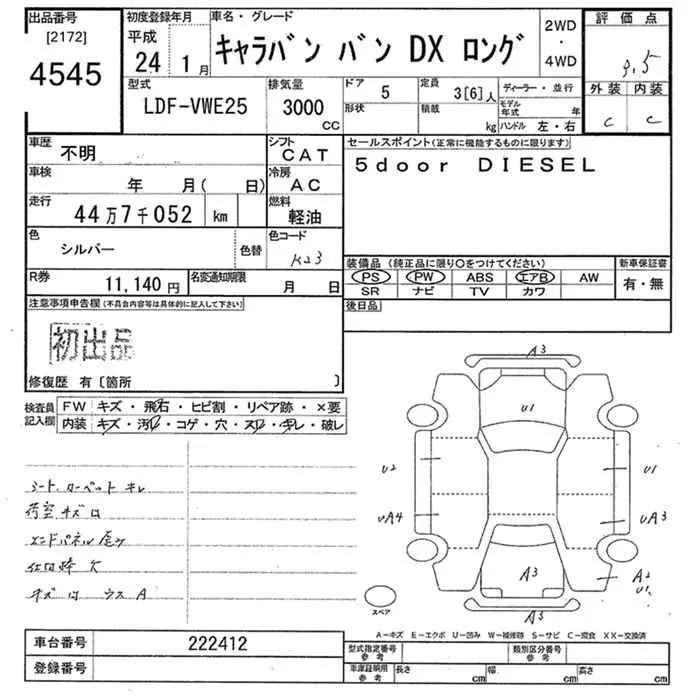 出品番号
[2172]
4545
初度登録年月
平成
24 1月
車名・グレード
キャラバン バン DX ロング
2WD
・
4WD
評価点
3.5
外装 内装
C C
型式
LDF-VWE25
排気量
3000
CC
ドア
5
形状
定員
3[6]人
積載
kg
ディーラー・並行
モデル年式 年
ハンドル 左・右
車歴
不明
シフト
CAT
車検
年 月( 日)
冷房
AC
走行
44万7千052 km
燃料
軽油
色
シルバー
色替
色コード
K23
R券
11,140円
名変通知期限
月 日
セールスポイント(正常に機能するものに限ります)
5door DIESEL
装備品(純正品に限り○をつけてください)
PS PW ABS エアB AW
SR ナビ TV カワ
新車保証書
有・無
注意事項申告欄(不具合内容等は具体的に記入して下さい)
初出品
修復歴 有〔箇所 〕
後日品
検査員
記入欄
FW キズ・飛石・ヒビ割・リペア跡・×要
内装 キズ・汚れ・コゲ・穴・スレ・キレ・破レ
シート、カーペット キレ
荷室 キズ
エンドパネル
穴
キズ ウス A
A3
U1
U2
U1
UA4
UA3
A3
A2
U1
A3
スペア
A－キズ E－エクボ U－凹み W－補修跡 S－サビ C－腐食 XX－交換済
車台番号
222412
登録番号
型式指定番号
参考
類別区分番号
参考
車庫証明用
参考
長さ cm
幅 cm
高さ cm